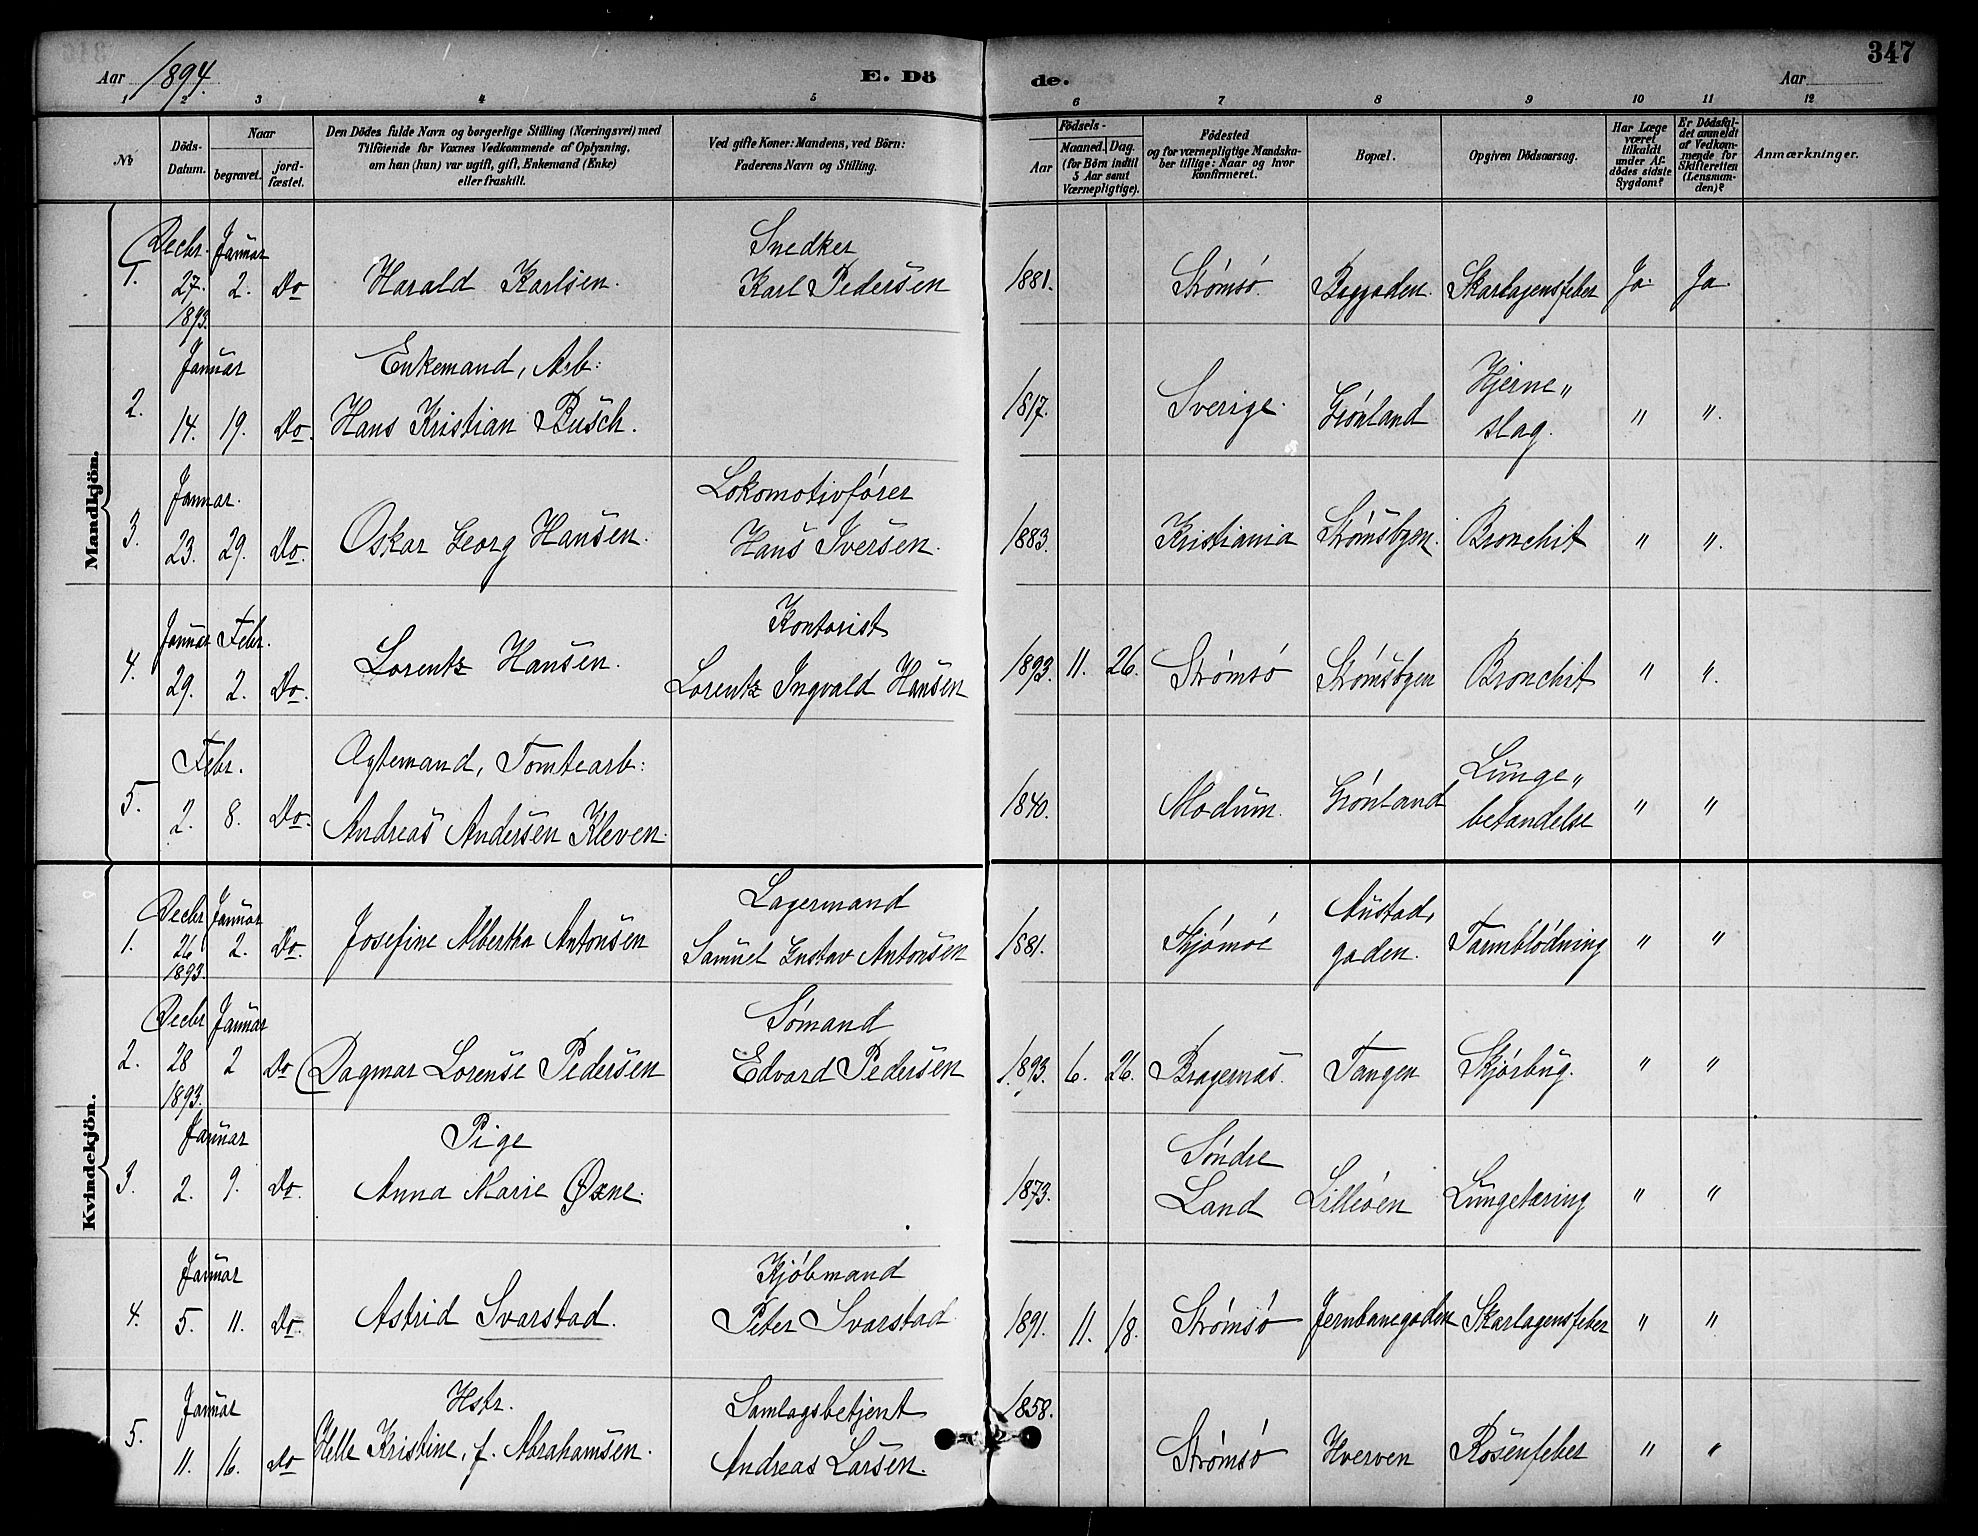 347
Aar 1894. E. Dö de. Aar
1 2 3 4 5 6 7 8 9 10 11 12
No
Döds-Datum.
Naar
begravet.
jordfæstet.
Den Dödes fulde Navn og borgerlige Stilling (Næringsvei) med
Tilföiende for Voxnes Vedkommende af Oplysning,
om han (hun) var ugift, gift, Enkemand (Enke)
eller fraskilt.
Ved gifte Koner: Mandens, ved Börn:
Faderens Navn og Stilling.
Födsels-
Aar
Maaned. Dag.
(for Börn indtil
5 Aar samt
Værnepligtige).
Födested
og for værnepligtige Mandska-
ber tillige: Naar og hvor
Konfirmeret.
Bopæl.
Opgiven Dödsaarsag.
Har Læge
været
tilkaldt
under Af-
dödes sidste
Sygdom?
Er Dödsfal-
det anmeldt
af Vedkom-
mende for
Skifteretten
(Lensman-
den)?
Anmærkninger.
Mandkjön.
Decbr. Januar Snedker
1. 27. 2. Do Harald Karlsen. Karl Pedersen 1881. Strømsø. Baggaden. Skarlagensfeber Ja. Ja.
1893.
Januar Enkemand, Arb: Hjerne„
2. 14. 19. Do. Hans Kristian Busch. 1817. Sverige. Grønland slag. „ „.
Januar. Lokomotivfører
3. 23. 29. Do. Oskar Georg Hansen. Hans Iversen. 1883. Kristiania Strømsbyen. Bronchit „ „.
Januar Febr. Kontorist
4. 29. 2. Do. Lorentz Hansen. Lorentz Ingvald Hansen 1893. 11. 26. Strømsø Strømsbyen Bronchit „ „.
Febr. Ægtemand, Tomtearb: Lunge„
5. 2. 8. Do. Andreas Andersen Kleven. 1840. Modum. Grønland betændelse „ „
Kvindekjön.
Decbr Januar Lagermand Austad,
1. 26. 2. Do. Josefine Albertha Antonsen Samuel Gustav Antonsen 1881. Thjømøe gaden. Tarmblödning „ „
1893.
Decbr Januar Sømand
2. 28 2 Do Dagmar Lorense Pedersen Edvard Pedersen 1893. 6. 26. Bragernæs. Tangen Skjørbug. „ „
1893.
Januar Pige Søndre
3. 2. 9. Do. Anna Marie Øxne. 1873. Land Lilleøen Lungetæring „ „
Januar Kjøbmand
4. 5. 11. Do. Astrid Svarstad. Peter Svarstad 1891. 11. 18. Strømsø Jernbanegaden Skarlagensfeber „ „
Januar Hstr. Samlagsbetjent 1858.
5. 11. 16. Do Helle Kristine, f. Abrahamsen. Andreas Larsen. Strømsø Hverven Rosenfeber „ „